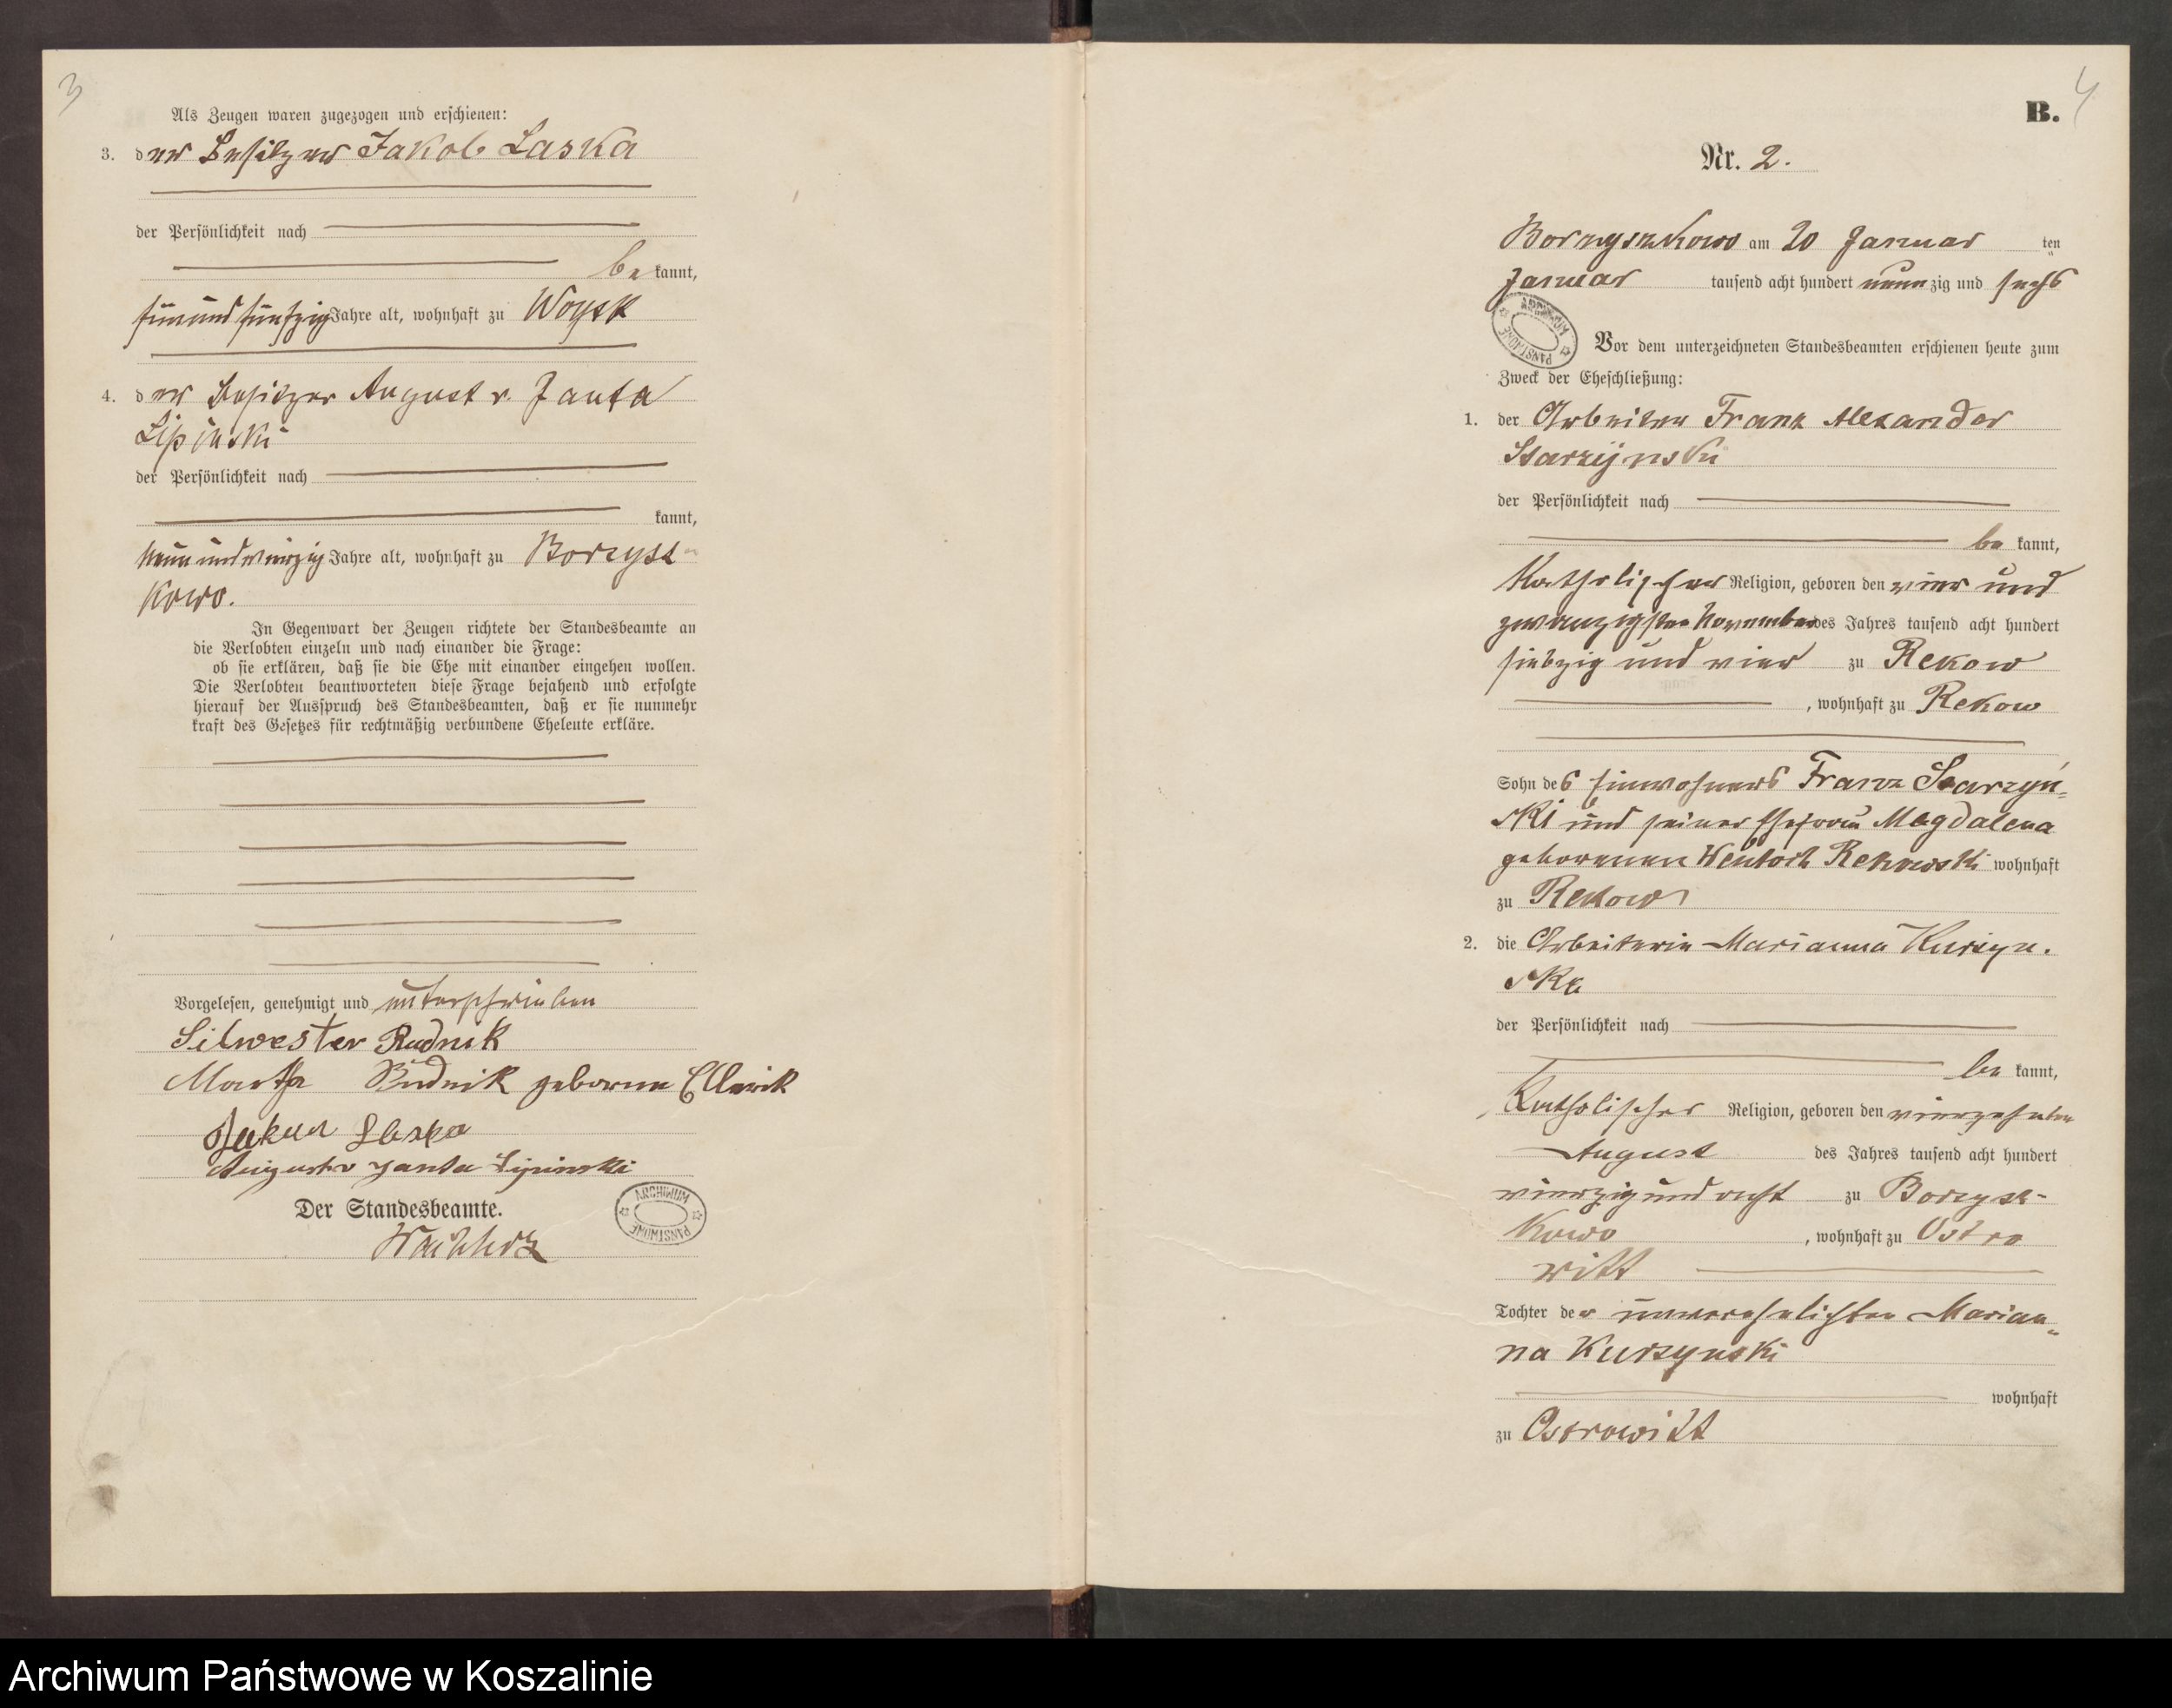 3
Als Zeugen waren zugezogen und erschienen:
3. der Besitzer Jakob Laska
der Persönlichkeit nach
be kannt,
fünfundfünfzig Jahre alt, wohnhaft zu Woysk
4. der Besitzer August v. Janta
Lipinski
der Persönlichkeit nach
kannt,
neunundvierzig Jahre alt, wohnhaft zu Borzysz-
kowo.
In Gegenwart der Zeugen richtete der Standesbeamte an
die Verlobten einzeln und nach einander die Frage:
ob sie erklären, daß sie die Ehe mit einander eingehen wollen.
Die Verlobten beantworteten diese Frage bejahend und erfolgte
hierauf der Ausspruch des Standesbeamten, daß er sie nunmehr
kraft des Gesetzes für rechtmäßig verbundene Eheleute erkläre.
Vorgelesen, genehmigt und unterschrieben
Silwester Rudnik
Martha Rudnik geborene
Jakub Laska
August v Janta Lipinski
Der Standesbeamte.
ARCHIWUM PAŃSTWOWE
4
B.
Nr. 2.
Borzyszkowo am 20 Januar ten
Januar tausend acht hundert neunzig und sechs
ARCHIWUM PAŃSTWOWE
Vor dem unterzeichneten Standesbeamten erschienen heute zum
Zweck der Eheschließung:
1. der Arbeiter Franz Alexander
Starzynski
der Persönlichkeit nach
be kannt,
Katholischer Religion, geboren den vier und
zwanzigsten November des Jahres tausend acht hundert
siebzig und vier zu Rekow
, wohnhaft zu Rekow
Sohn des Einwohners Franz Starzyn-
ski und seiner Ehefrau Magdalena
geborenen Wentoch Rekowski wohnhaft
zu Rekow
2. die Arbeiterin Marianna Kurzyn-
ska
der Persönlichkeit nach
be kannt,
Katholischer Religion, geboren den vierzehnten
August des Jahres tausend acht hundert
vierzig und acht zu Borzysz-
kowo , wohnhaft zu Ostro
witt
Tochter der unverehelichten Marian-
na Kurzynski
wohnhaft
zu Ostrowitt
Archiwum Państwowe w Koszalinie